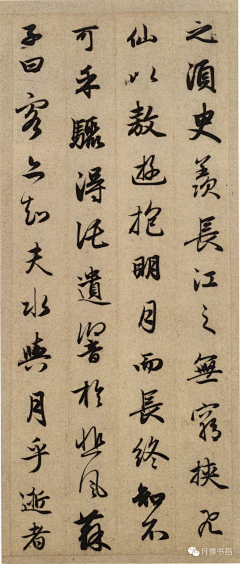 之須臾羨長江之無窮挾飛
仙以敖遊抱明月而長終知不
可乎驟得託遺響於悲風蘇
子曰客亦知夫水與月乎逝者
月雅书画